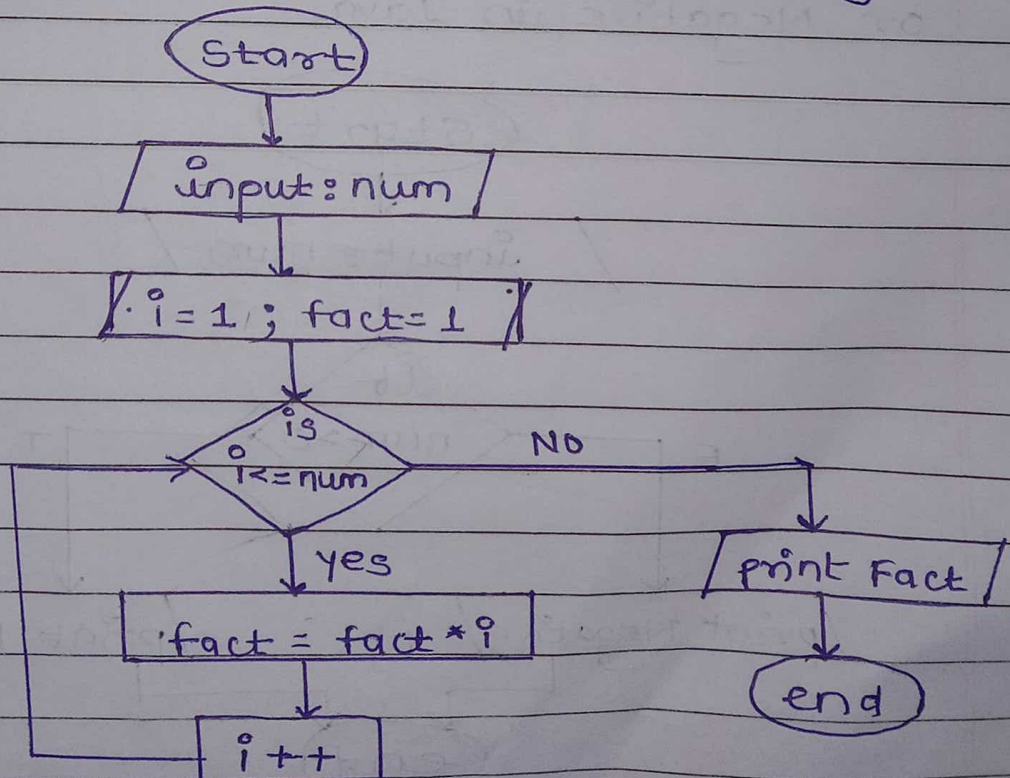 Start
input: num
i = 1 ; fact = 1
is
i <= num
NO
yes
print Fact
fact = fact * i
end
i ++